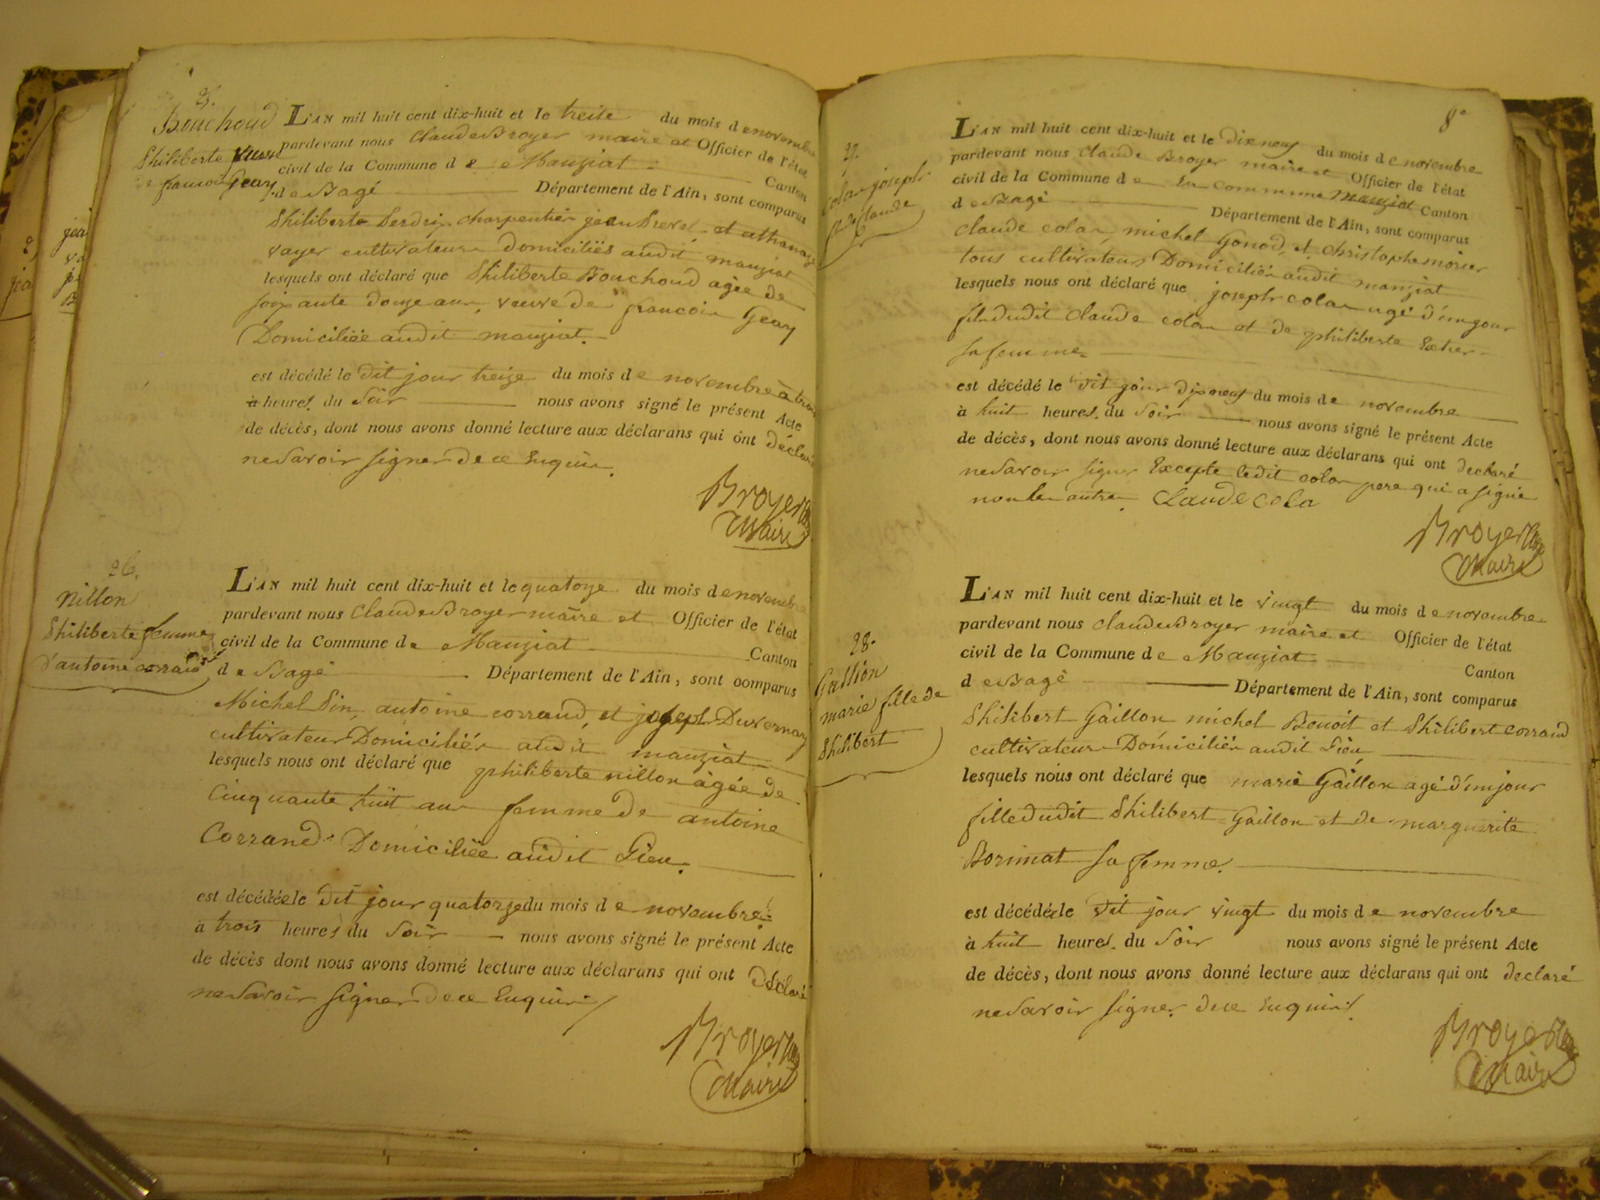 25.
Bouchoud
Philiberte veuve
de francois Geay
L'AN mil huit cent dix-huit et le treise du mois de novembre
pardevant nous Claude Broyer maire et Officier de l'état
civil de la Commune de Manziat Canton
de Bagé Département de l'Ain, sont comparus
Philiberte Perdrix charpentier jean Prevel et athanase
vayer cultivateurs domiciliés audit manziat
lesquels ont déclaré que Philiberte Bouchoud agée de
soixante douze ans, veuve de francois Geay
Domiciliée audit manziat.
est décédé le dit jour treize du mois de novembre à trois
à heures du Soir nous avons signé le présent Acte
de décès, dont nous avons donné lecture aux déclarans qui ont déclaré
ne Savoir signer de ce Enquis.
Broyer
Maire
26.
Nillon
Philiberte femme
d'antoine corrand
L'AN mil huit cent dix-huit et le quatorze du mois de novembre
pardevant nous Claude Broyer maire et Officier de l'état
civil de la Commune de Manziat Canton
de Bagé Département de l'Ain, sont comparus
Michel Pin, antoine corrand, et joseph Duvernay
cultivateurs Domiciliés audit manziat
lesquels nous ont déclaré que philiberte nillon âgée de
Cinquante huit ans femme de antoine
Corrand Domiciliée audit Lieu.
est décédée le dit jour quatorze du mois de novembre
à trois heures du Soir nous avons signé le présent Acte
de décès dont nous avons donné lecture aux déclarans qui ont déclaré
ne Savoir Signer de ce Enquis
Broyer
Maire
8e
27.
Colas joseph
fils de Claude
L'AN mil huit cent dix-huit et le dix neuf du mois de novembre
pardevant nous Claude Broyer maire et Officier de l'état
civil de la Commune de la Commune Manziat Canton
de Bagé Département de l'Ain, sont comparus
Claude colas, michel Gonod, et christophe
tous cultivateurs Domiciliés audit manziat
lesquels nous ont déclaré que joseph colas agé d'un jour
fils dudit Claude colas et de philiberte
sa femme
est décédé le dit jour dix neuf du mois de novembre
à huit heures du Soir nous avons signé le présent Acte
de décès, dont nous avons donné lecture aux déclarans qui ont declaré
ne Savoir signer Excepte ledit colas pere qui a signé
non les autres. Claude Cola
Broyer
Maire
28.
Gallion
marie fille de
Philibert
L'AN mil huit cent dix-huit et le vingt du mois de novembre
pardevant nous Claude Broyer maire et Officier de l'état
civil de la Commune de Manziat Canton
de Bagé Département de l'Ain, sont comparus
Philibert Gaillon michel Benoit et Philibert corrand
cultivateurs Domiciliés audit Lieu
lesquels nous ont déclaré que marie Gaillon agé d'un jour
fille dudit Philibert Gaillon et de marguerite
Borimat sa femme.
est décédée le dit jour vingt du mois de novembre
à huit heures du Soir nous avons signé le présent Acte
de décès, dont nous avons donné lecture aux déclarans qui ont declaré
ne Savoir signer de ce Enquis
Broyer
Maire